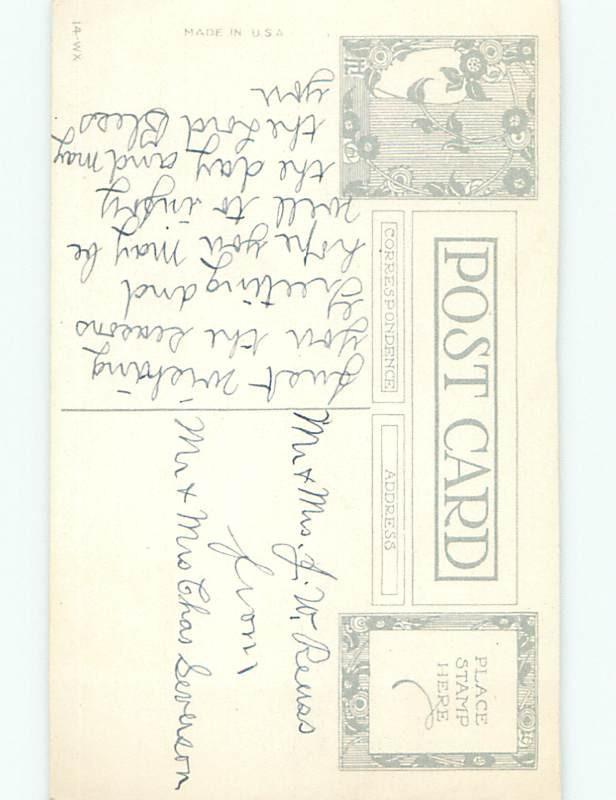 POST CARD
CORRESPONDENCE
ADDRESS
PLACE
STAMP
HERE
Just wishing
you the seasons
greeting and
hope you may be
well to injoy
the day and may
the Lord Bless
you
Mr & Mrs. J. W.
from
Mr & Mrs Chas Severson
MADE IN U.S.A
14-WX